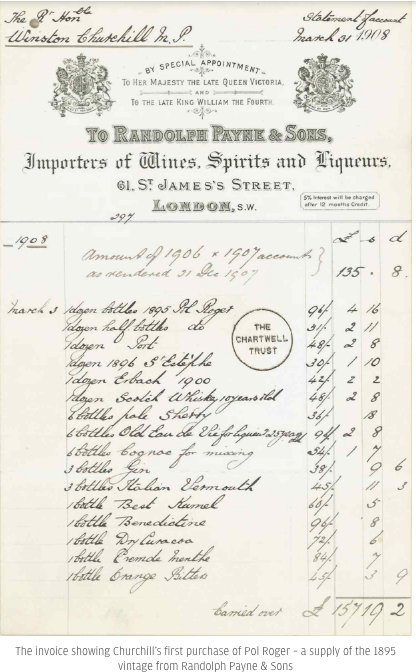 The Rt Honble
Winston Churchill M.P.
Statement of account
March 31 1908
BY SPECIAL APPOINTMENT
TO HER MAJESTY THE LATE QUEEN VICTORIA,
AND
TO THE LATE KING WILLIAM THE FOURTH.
TO RANDOLPH PAYNE & SONS,
Importers of Wines, Spirits and Liqueurs,
61, ST JAMES'S STREET,
LONDON, S.W.
5% Interest will be charged
after 12 months Credit.
297
1908 £ s d
amount of 1906 & 1907 accounts
as rendered 31 Dec 1907 135 . 8 .
March 3 1 dozen bottles 1895 Pol Roger 96/- 4 16
1 dozen half bottles do 51/- 2 11
1 dozen Port 48/- 2 8
1 dozen 1896 St Estèphe 30/- 1 10
1 dozen Erbach 1900 42/- 2 2
1 dozen Scotch Whisky 10 years old 48/- 2 8
6 bottles pale Sherry 36/- 18
6 bottles Old Eau de Vie for liqueur 25 years old 96/- 2 8
6 bottles Cognac for mixing 54/- 1 7
3 bottles Gin 38/- 9 6
3 bottles Italian Vermouth 45/- 11 3
1 bottle Best Kumel 60/- 5
1 bottle Benedictine 96/- 8
1 bottle Dry Curacoa 72/- 6
1 bottle Creme de Menthe 84/- 7
1 bottle Orange Bitters 45/- 3 9
THE
CHARTWELL
TRUST
Carried over £ 157 19 2
The invoice showing Churchill's first purchase of Pol Roger – a supply of the 1895
vintage from Randolph Payne & Sons